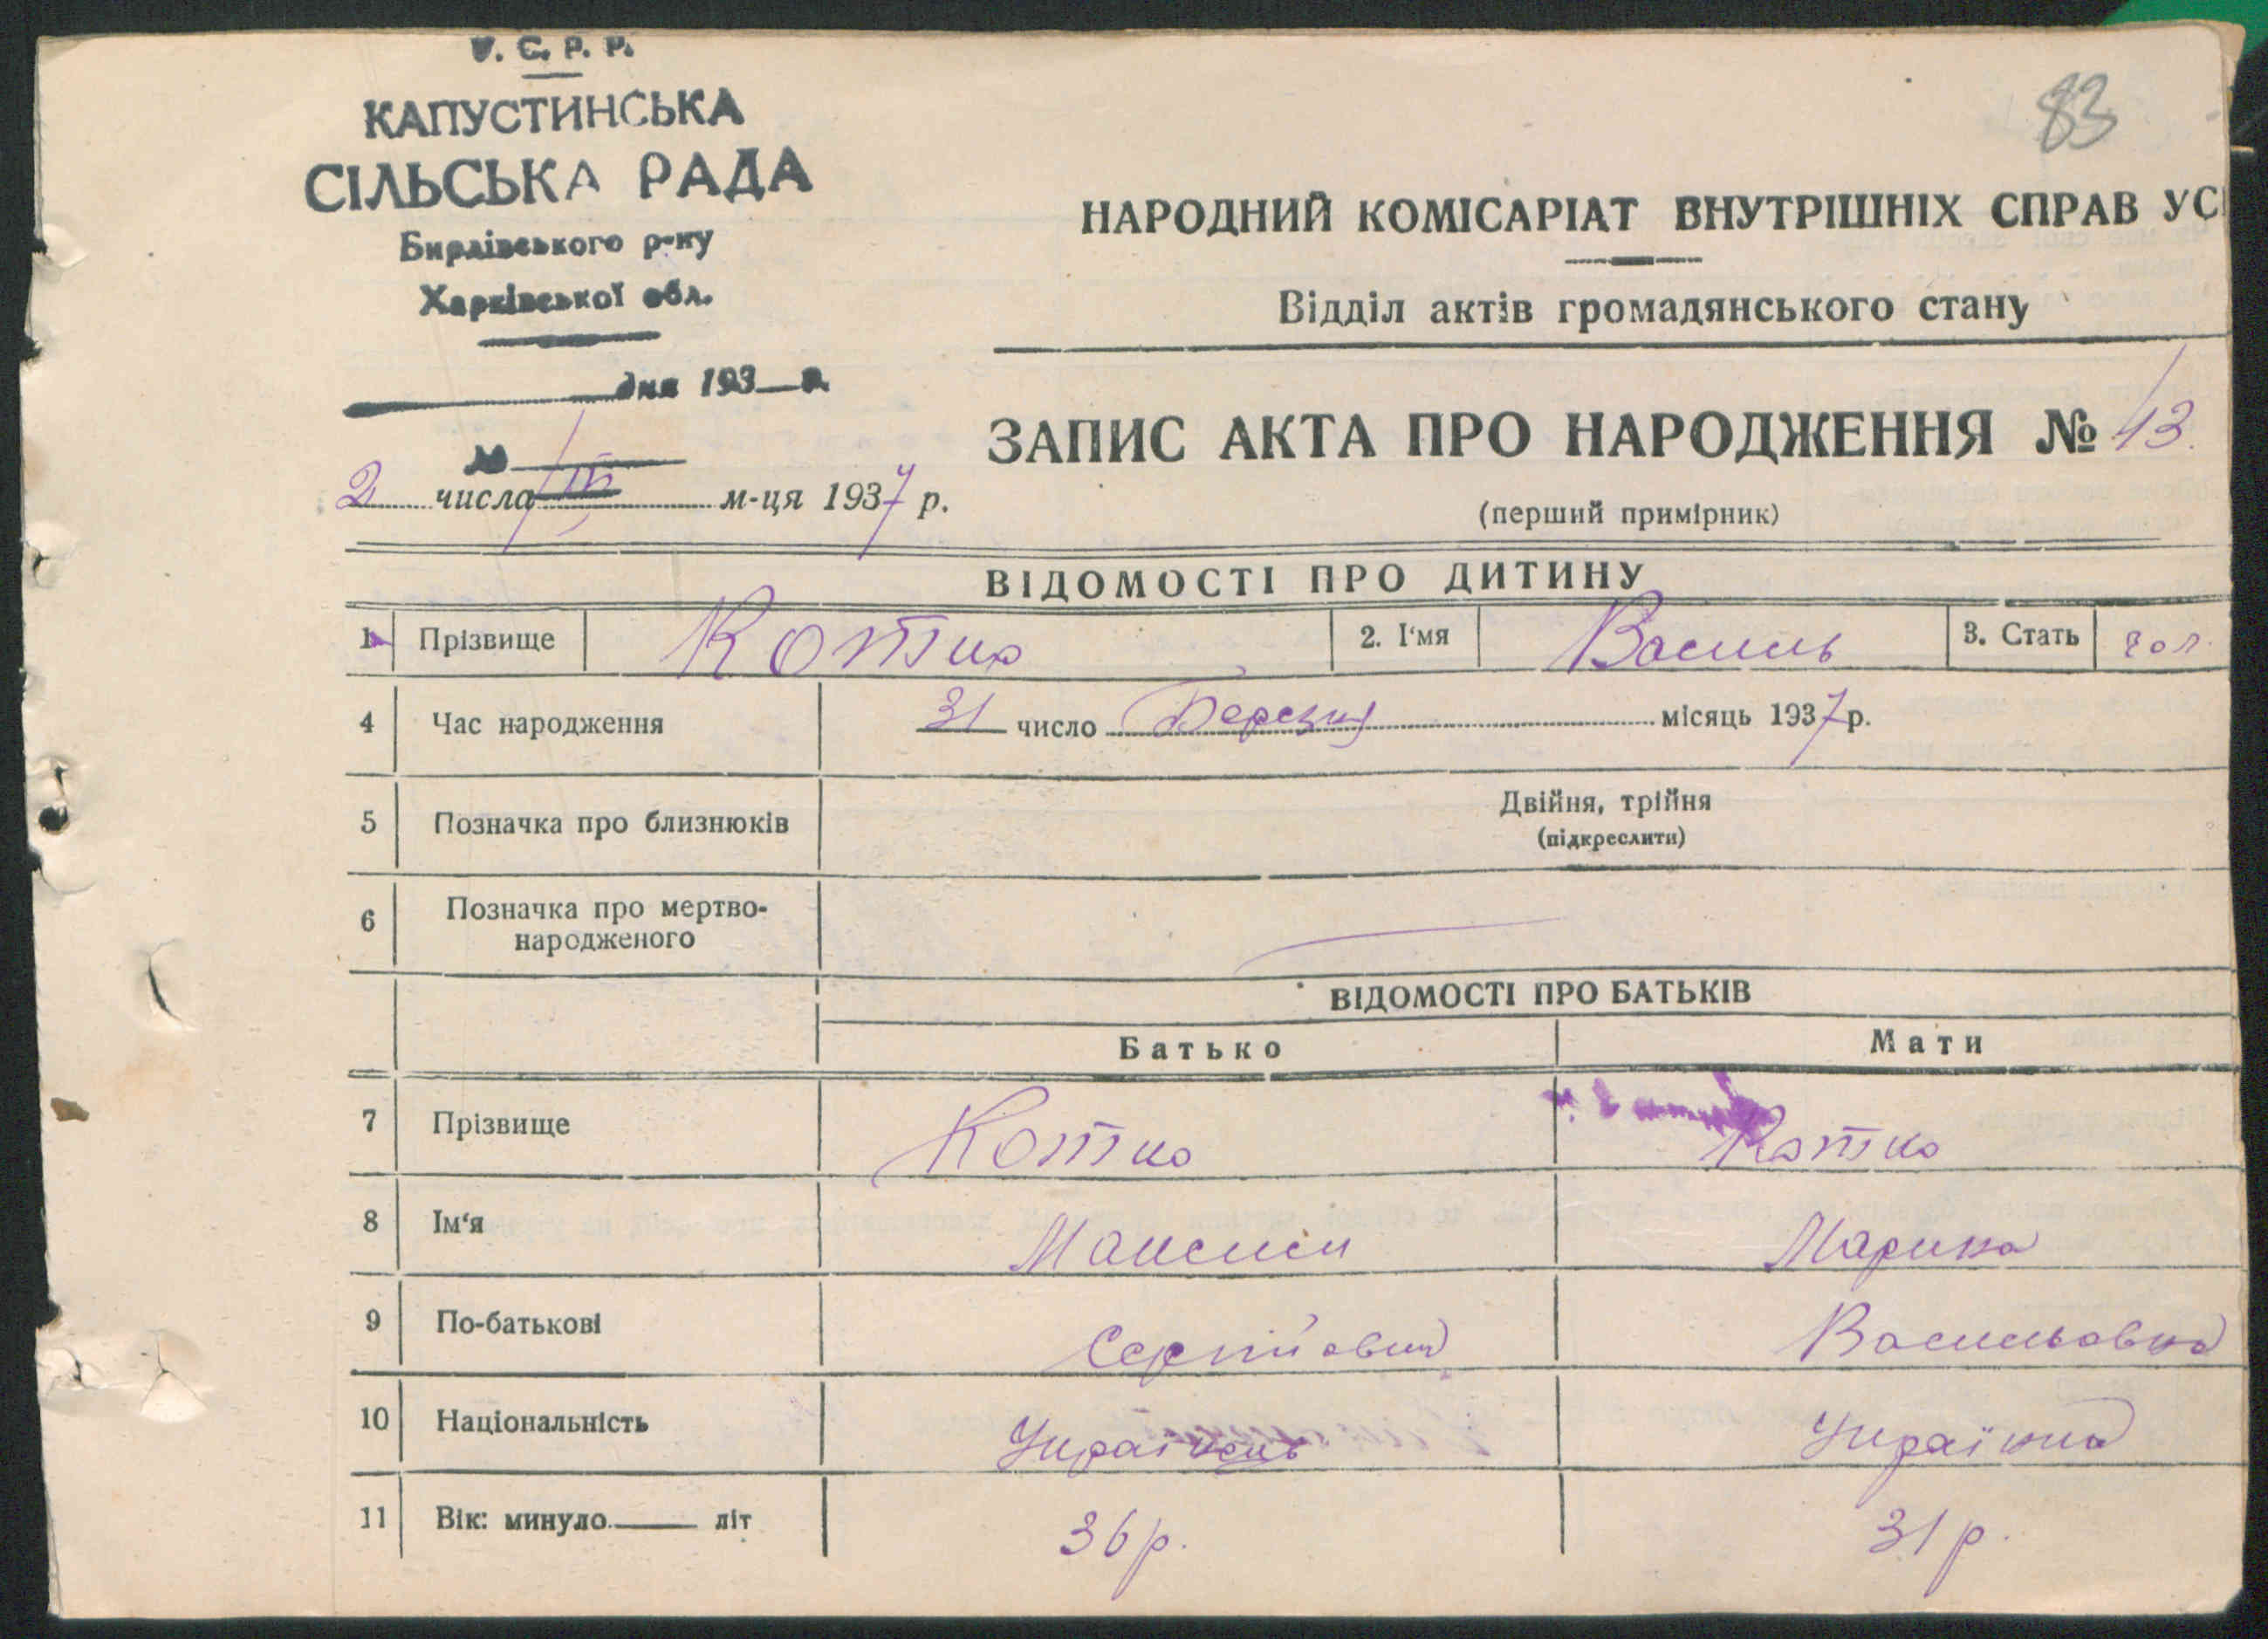 У. С. Р. Р.
КАПУСТИНСЬКА
СІЛЬСЬКА РАДА
Бирлівського р-ну
Харківської обл.
дня 193 р.
№
83
НАРОДНИЙ КОМІСАРІАТ ВНУТРІШНІХ СПРАВ УС
Відділ актів громадянського стану
ЗАПИС АКТА ПРО НАРОДЖЕННЯ № 13.
(перший примірник)
2 числа м-ця 1937 р.
ВІДОМОСТІ ПРО ДИТИНУ
1 Прізвище Котко 2. І'мя Василь 3. Стать чол.
4 Час народження 31 число Березня місяць 1937 р.
5 Позначка про близнюків Двійня, трійня
(підкреслити)
6 Позначка про мертво-
народженого
ВІДОМОСТІ ПРО БАТЬКІВ
Батько Мати
7 Прізвище Котко Котко
8 Ім'я Максим Марина
9 По-батькові Сергійович Васильовна
10 Національність Українець Українка
11 Вік: минуло літ 36 р. 31 р.